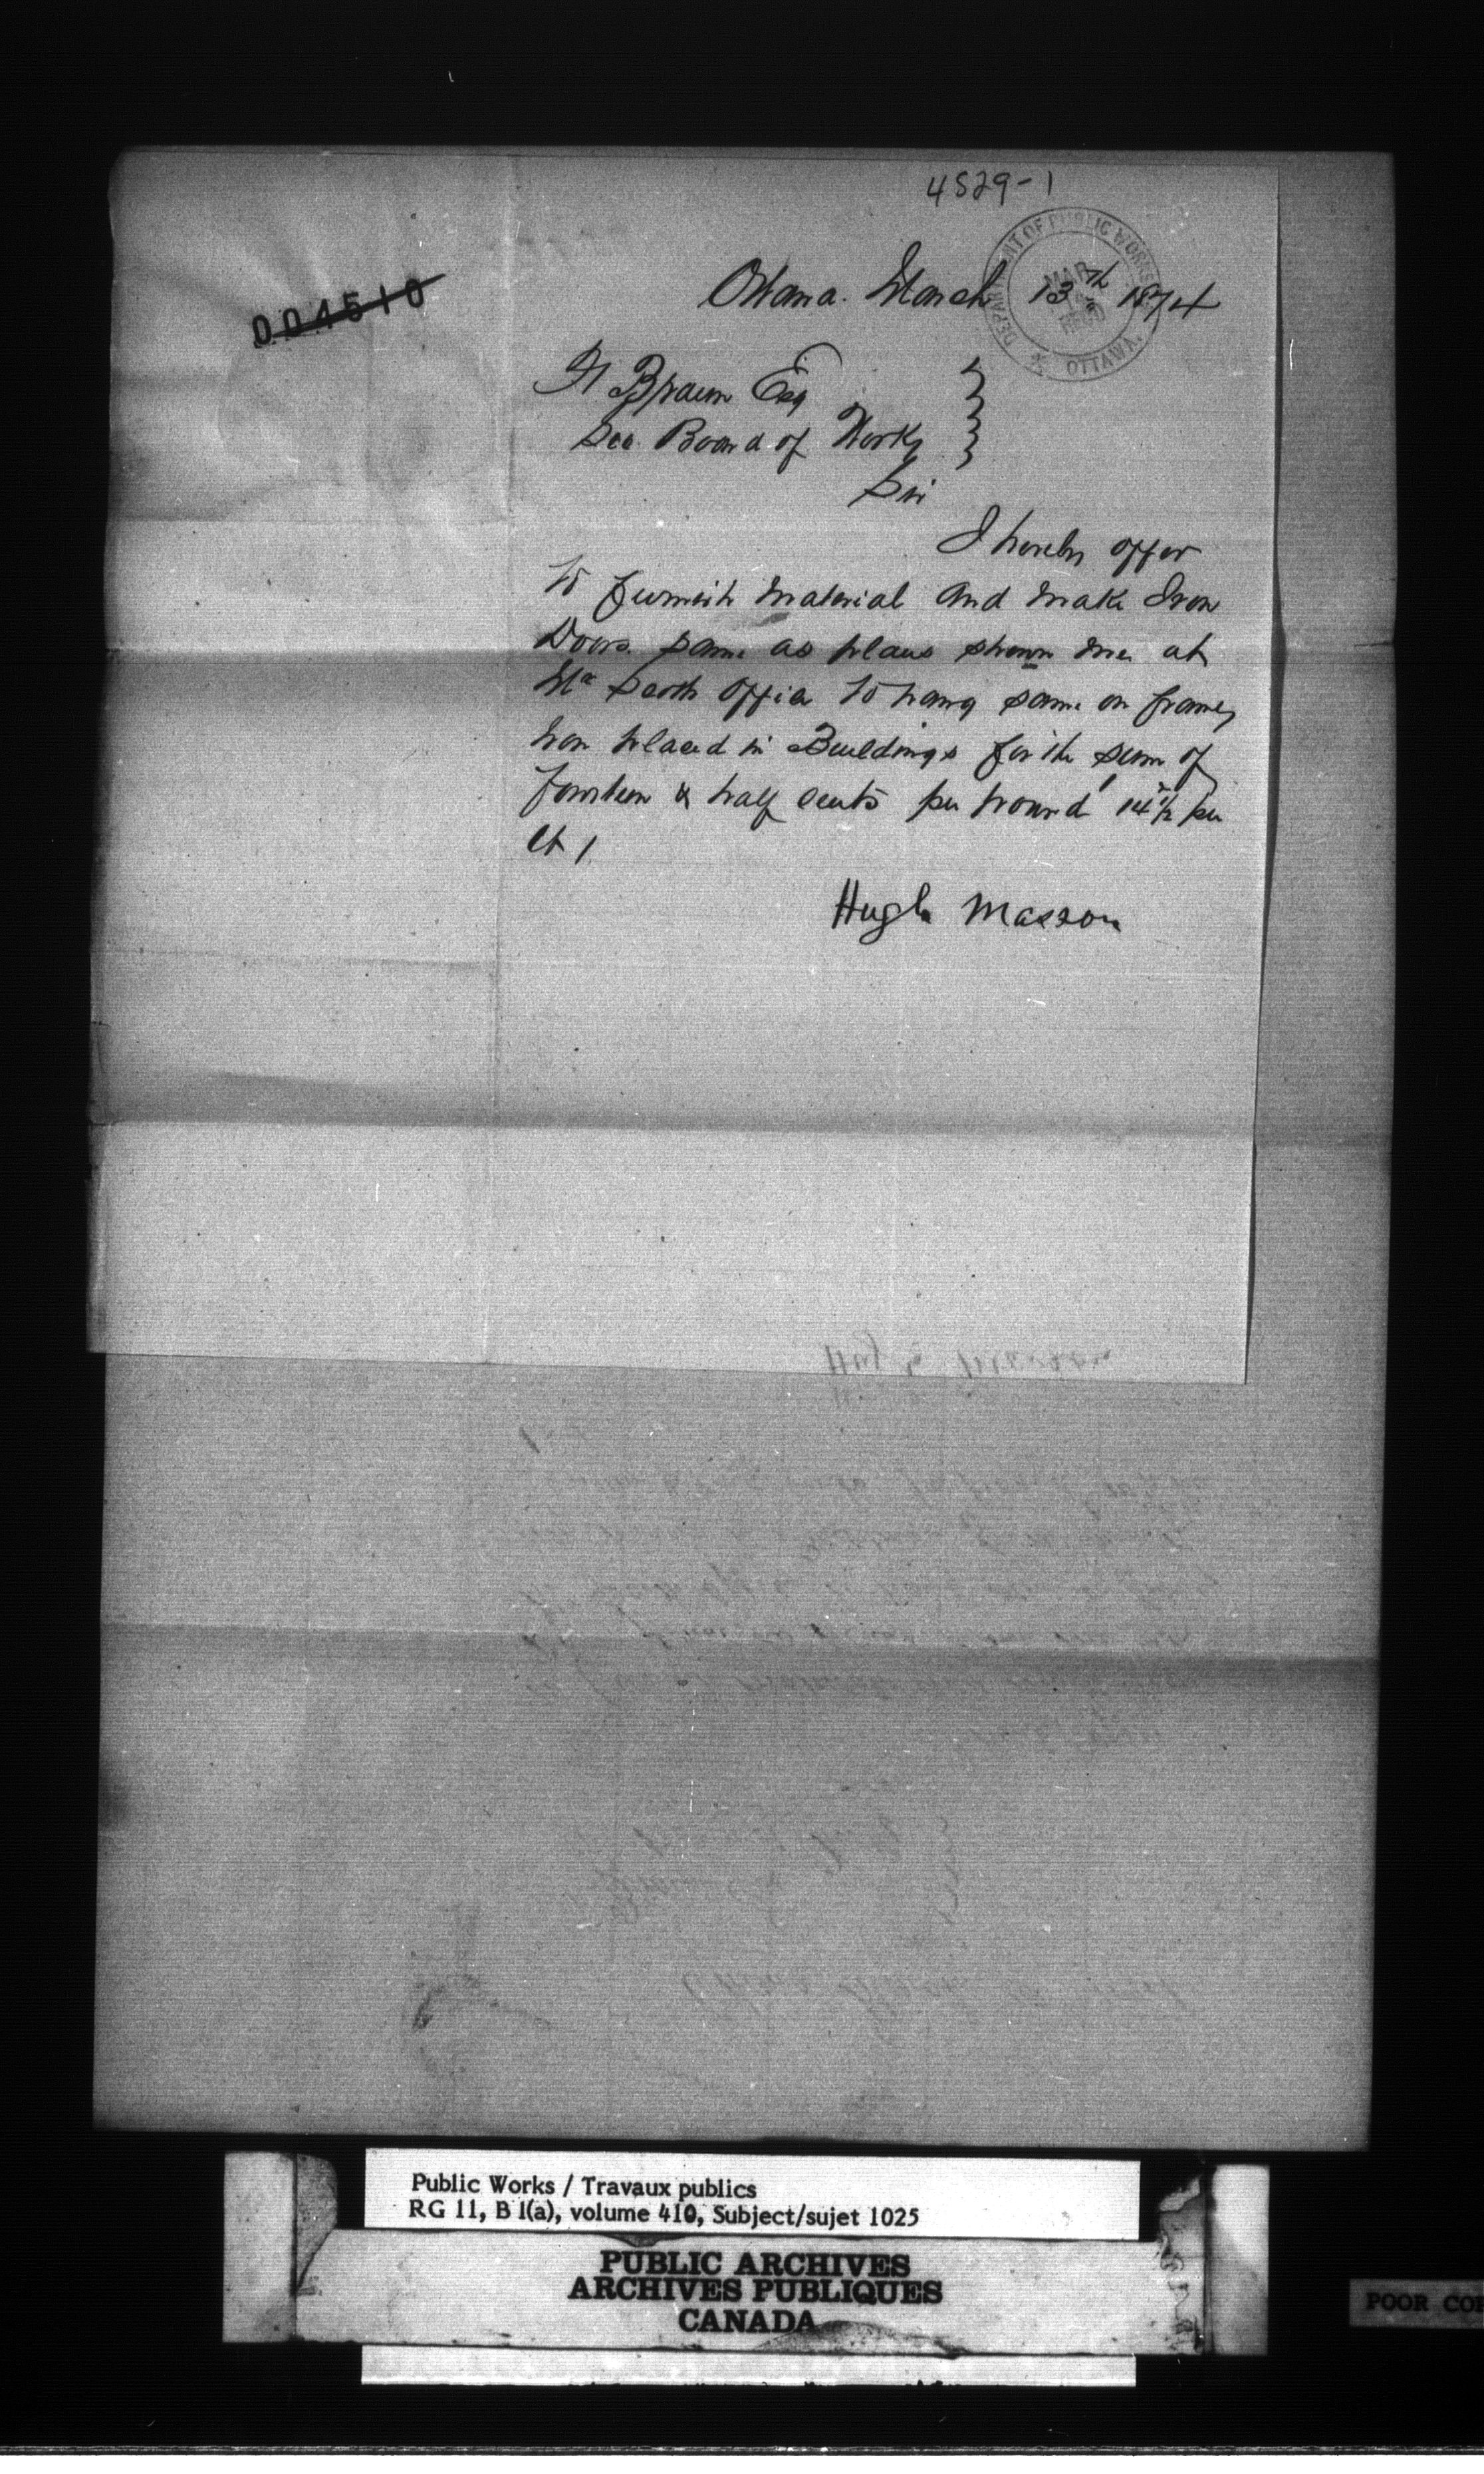 4529-1
DEPARTMENT OF PUBLIC WORKS
MAR
RECD
OTTAWA.
004510
Ottawa. March 13th 1874
F Braun Esq
Sec Board of Works
Sir
I hereby offer
to furnish material and make Iron
Doors. same as plans shown me at
Mr Scotts Office to hang same on frames
placed in Buildings for the sum of
fourteen & half cents per pound 14 1/2 per
Hugh Masson
Public Works / Travaux publics
RG 11, B 1(a), volume 410, Subject/sujet 1025
PUBLIC ARCHIVES
ARCHIVES PUBLIQUES
CANADA
POOR COP